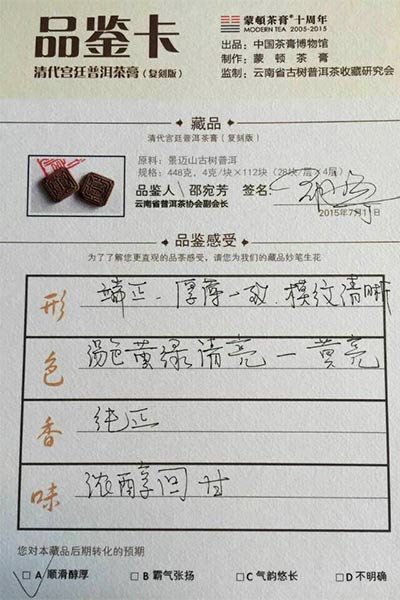 品鉴卡
清代宫廷普洱茶膏（复刻版）
蒙顿茶膏®十周年
MODERN TEA 2005-2015
出品：中国茶膏博物馆
制作：蒙顿茶膏
监制：云南省古树普洱茶收藏研究会
藏品
清代宫廷普洱茶膏（复刻版）
原料：景迈山古树普洱
规格：448克，4克/块×112块（28块/层×4层）
品鉴人 邵宛芳 签名：
云南省普洱茶协会副会长
2015年7月11日
品鉴感受
为了了解您更直观的品茶感受，请您为我们的藏品妙笔生花
形 端正、厚薄一致、模纹清晰
色 汤色黄绿清亮—黄亮
香 纯正
味 浓醇回甘
您对本藏品后期转化的预期
□A 顺滑醇厚 □B 霸气张扬 □C 气韵悠长 □D 不明确